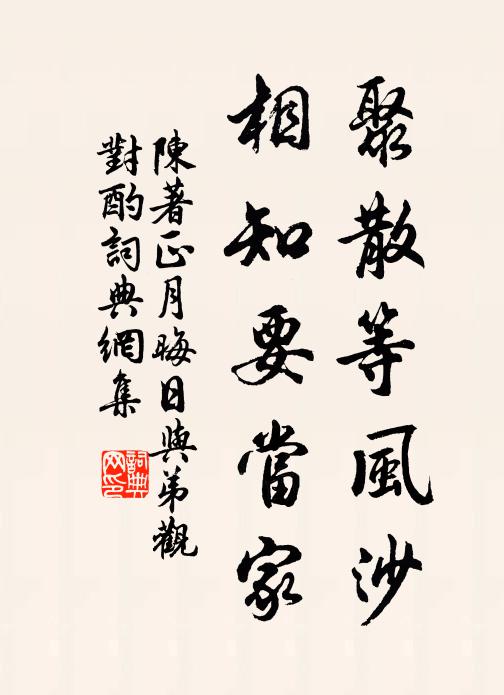 聚散等風沙
相知要當家
陳著正月晦日與弟觀
對酌詞典網集
詞典
网印